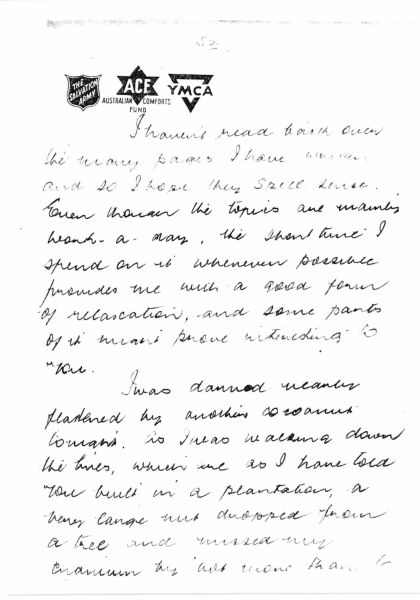 52.
THE SALVATION ARMY
ACE
AUSTRALIAN COMFORTS FUND
YMCA
I haven't read back over
the many pages I have written
and so I hope they spell sense.
Even though the topics are mainly
work-a-day, the short time I
spend on it whenever possible
provides me with a good form
of relaxation, and some parts
of it might prove interesting to
you.
I was damned nearly
flattened by another cocoanut
tonight. As I was walking down
the lines, which are as I have told
you built in a plantation, a
very large nut dropped from
a tree and missed my
cranium by not more than 6